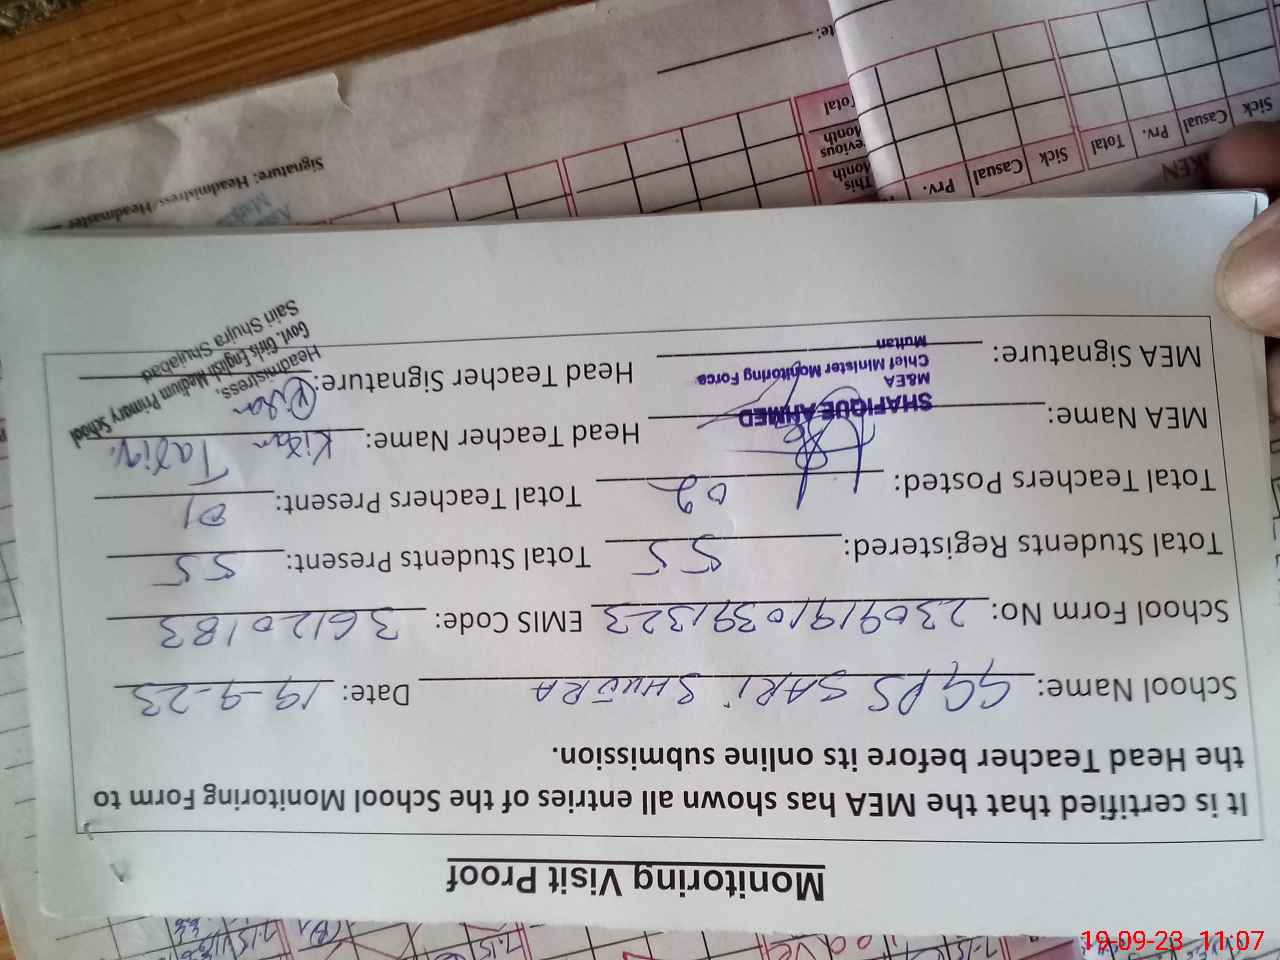 Monitoring Visit Proof
It is certified that the MEA has shown all entries of the School Monitoring Form to
the Head Teacher before its online submission.
School Name: GGPS SARI SHUJRA Date: 19-9-23
School Form No: 23091910391323 EMIS Code: 36120183
Total Students Registered: 55 Total Students Present: 55
Total Teachers Posted: 02 Total Teachers Present: 01
MEA Name: Head Teacher Name: Kizan Tariq.
SHAFIQUE AHMED
M&EA
Chief Minister Monitoring Force
Multan
MEA Signature: Head Teacher Signature:
Headmistress,
Govt. Girls English Medium Primary School
Sairi Shujra Shujabad
Signature: Headmistress/Headmaster
This Month
Previous Month
Total
Sick Casual Prv. Total Sick Casual Prv.
19-09-23 11:07